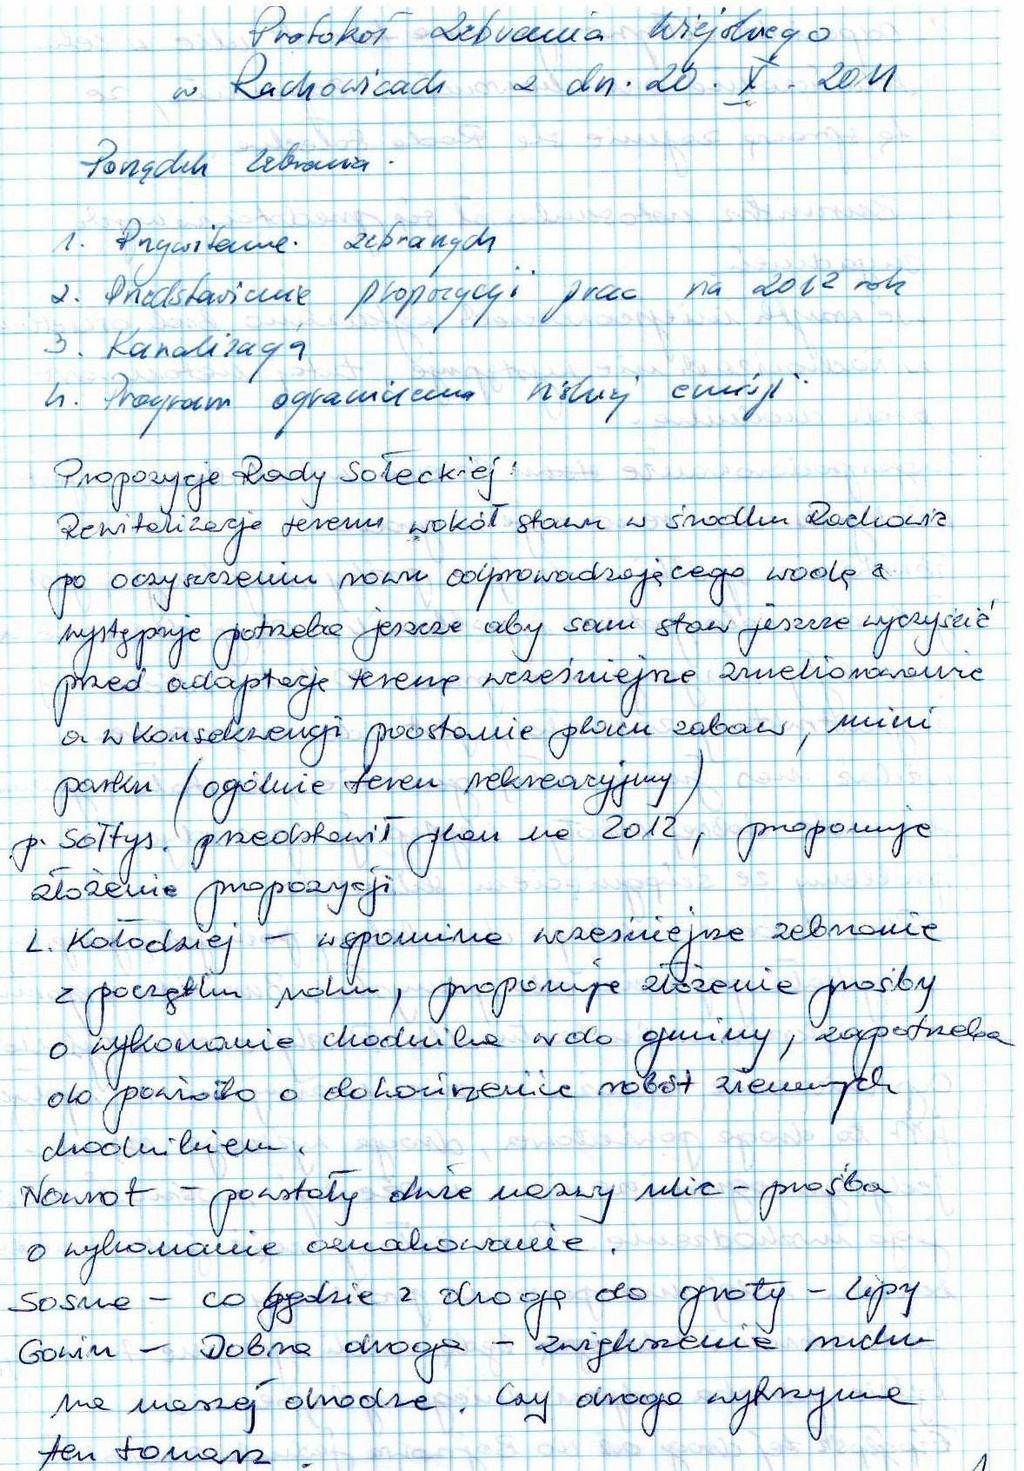 Protokół Zebrania Wiejskiego
w Rachowicach z dn. 20. X. 2011
Porządek Zebrania.
1. Przywitanie zebranych
2. Przedstawienie propozycji prac na 2012 rok
3. Kanalizacja
4. Program ograniczenia niskiej emisji
Propozycje Rady Sołeckiej:
Rewitalizacje terenu wokół stawu w środku Rachowic
po oczyszczeniu rowu odprowadzającego wodę z
występuje potrzeba jeszcze aby sam staw jeszcze wyczyścić
przed adaptację terenu wcześniejsze zmeliorowanie
a w konsekwencji powstanie placu zabaw, mini
parku (ogólnie teren rekreacyjny)
p. Sołtys. przedstawił plan na 2012, proponuje
złożenie propozycji
L. Kołodziej – wspomina wcześniejsze zebranie
z początku roku, proponuje złożenie prośby
o wykonanie chodnika do gminy, zapotrzeba
do powiatu o dokończenie robót ziemnych
chodnikiem.
Nowrot – powstały dwie nazwy ulic – prośba
o wykonanie oznakowanie.
Sosna – co będzie z drogą do groty – Lipy
Gowin – Dobra droga – zwiększenie ruchu
na naszej drodze. Czy droga wytrzyma
ten tonarz.
1